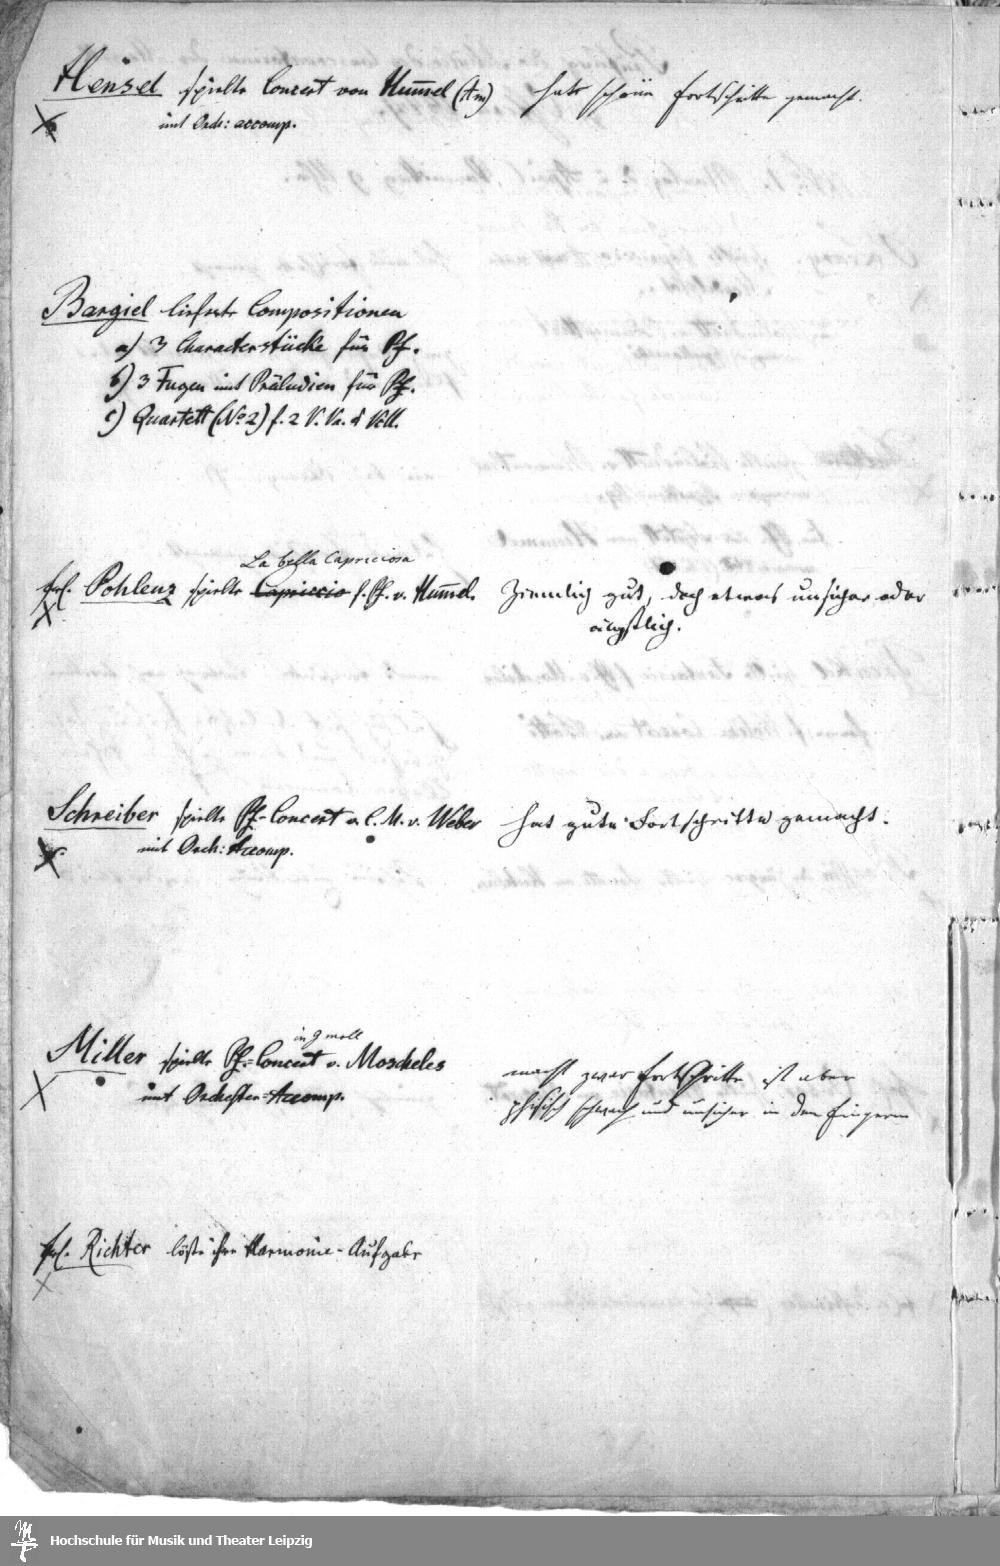 Hensel spielte Concert von Hummel (Am) hat schöne Fortschritte gemacht.
mit Orch: accomp.
Bargiel lieferte Compositionen
a) 3 Characterstücke für Pf.
b) 3 Fugen mit Präludien für Pf.
c) Quartett (No 2) f. 2 V. Va. & Vcll.
La bella Capriciosa
Frl. Pohlenz spielte Capriccio f. Pf. v. Hummel. Ziemlich gut, doch etwas unsicher oder
ängstlich.
Schreiber spielte Pf-Concert v. C. M. v. Weber hat gute Fortschritte gemacht.
mit Orch: Accomp.
in g moll
Miller spielte Pf.-Concert v. Moscheles macht zwar Fortschritte ist aber
mit Orchester-Accomp. phisisch schwach und unsicher in den Fingern
Frl. Richter löste ihre Harmonie-Aufgabe
Hochschule für Musik und Theater Leipzig